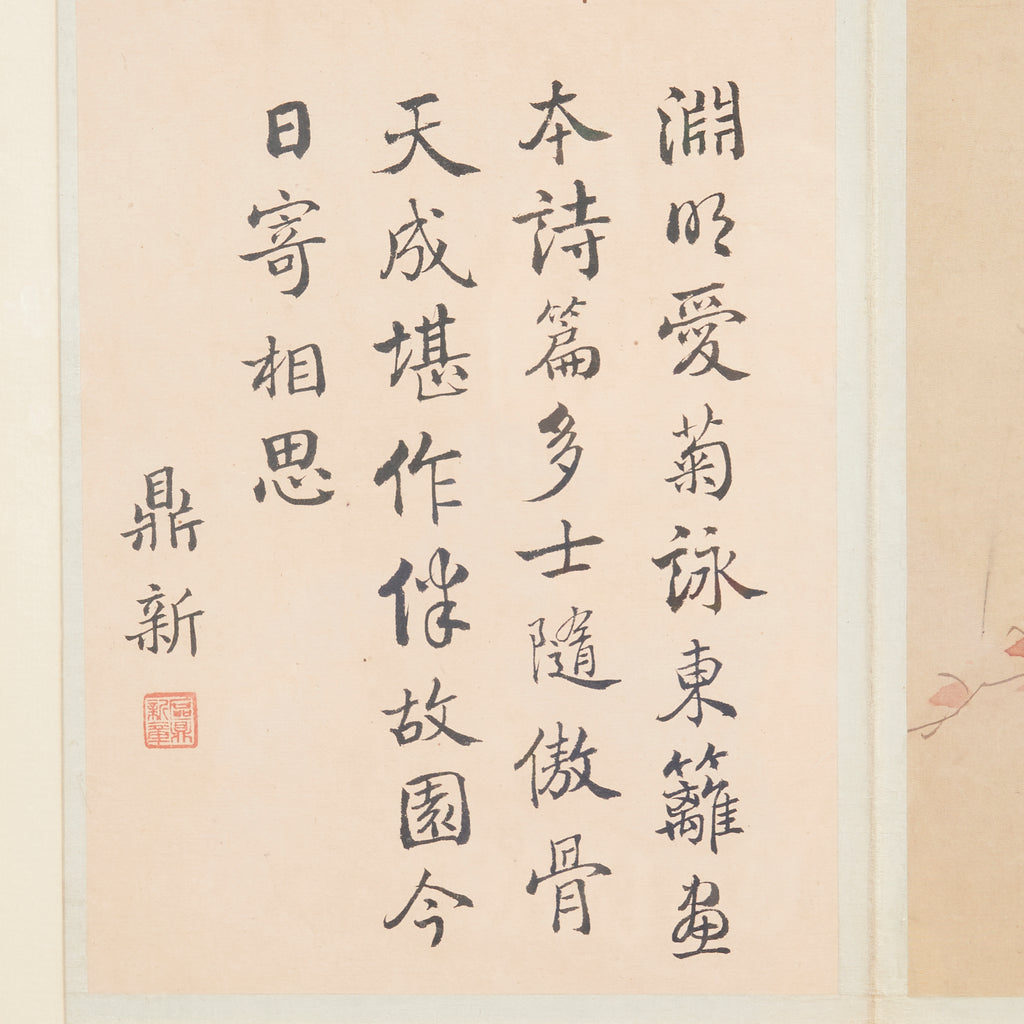 淵明愛菊詠東籬畫
本詩篇多士隨傲骨
天成堪作伴故園今
日寄相思
鼎新